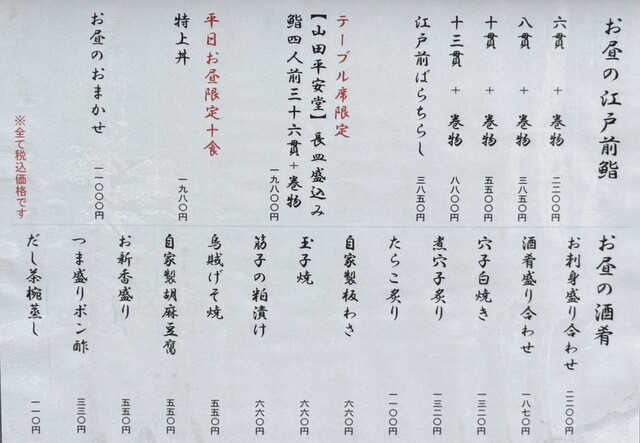 お昼の江戸前鮨
六貫 + 巻物 二二〇〇円
八貫 + 巻物 三八五〇円
十貫 + 巻物 五五〇〇円
十三貫 + 巻物 八八〇〇円
江戸前ばらちらし 三八五〇円
テーブル席限定
【山田平安堂】長皿盛込み
鮨四人前三十六貫+巻物 一九八〇〇円
平日お昼限定十食
特上丼 一九八〇円
お昼のおまかせ 一一〇〇〇円
※全て税込価格です
お昼の酒肴
お刺身盛り合わせ 二二〇〇円
酒肴盛り合わせ 一八七〇円
穴子白焼き 一三二〇円
煮穴子炙り 一三二〇円
たらこ炙り 一一〇〇円
自家製板わさ 六六〇円
玉子焼 六六〇円
筋子の粕漬け 六六〇円
烏賊げそ焼 五五〇円
自家製胡麻豆腐 五五〇円
お新香盛り 五五〇円
つま盛りポン酢 三三〇円
だし茶椀蒸し 一一〇円